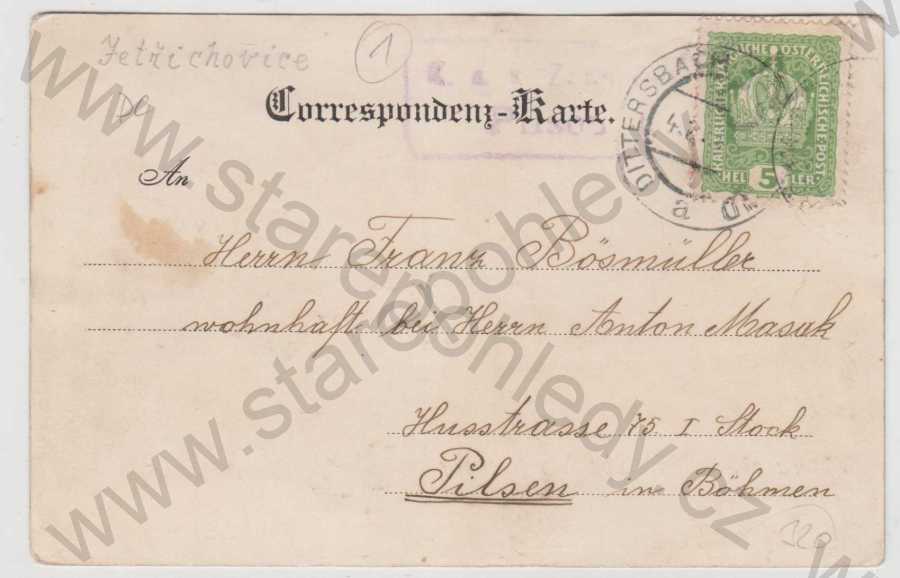 Jetřichovice
1
Correspondenz-Karte.
DITTERSBACH
a
KAISERLICHE KÖNIGLICHE ÖSTERREICHISCHE POST
HELLER
5
An
Herrn Franz Bösmüller
wohnhaft bei Herrn Anton Masak
Husstrasse 75 I Stock
Pilsen in Böhmen
320
www.starepohledy.cz